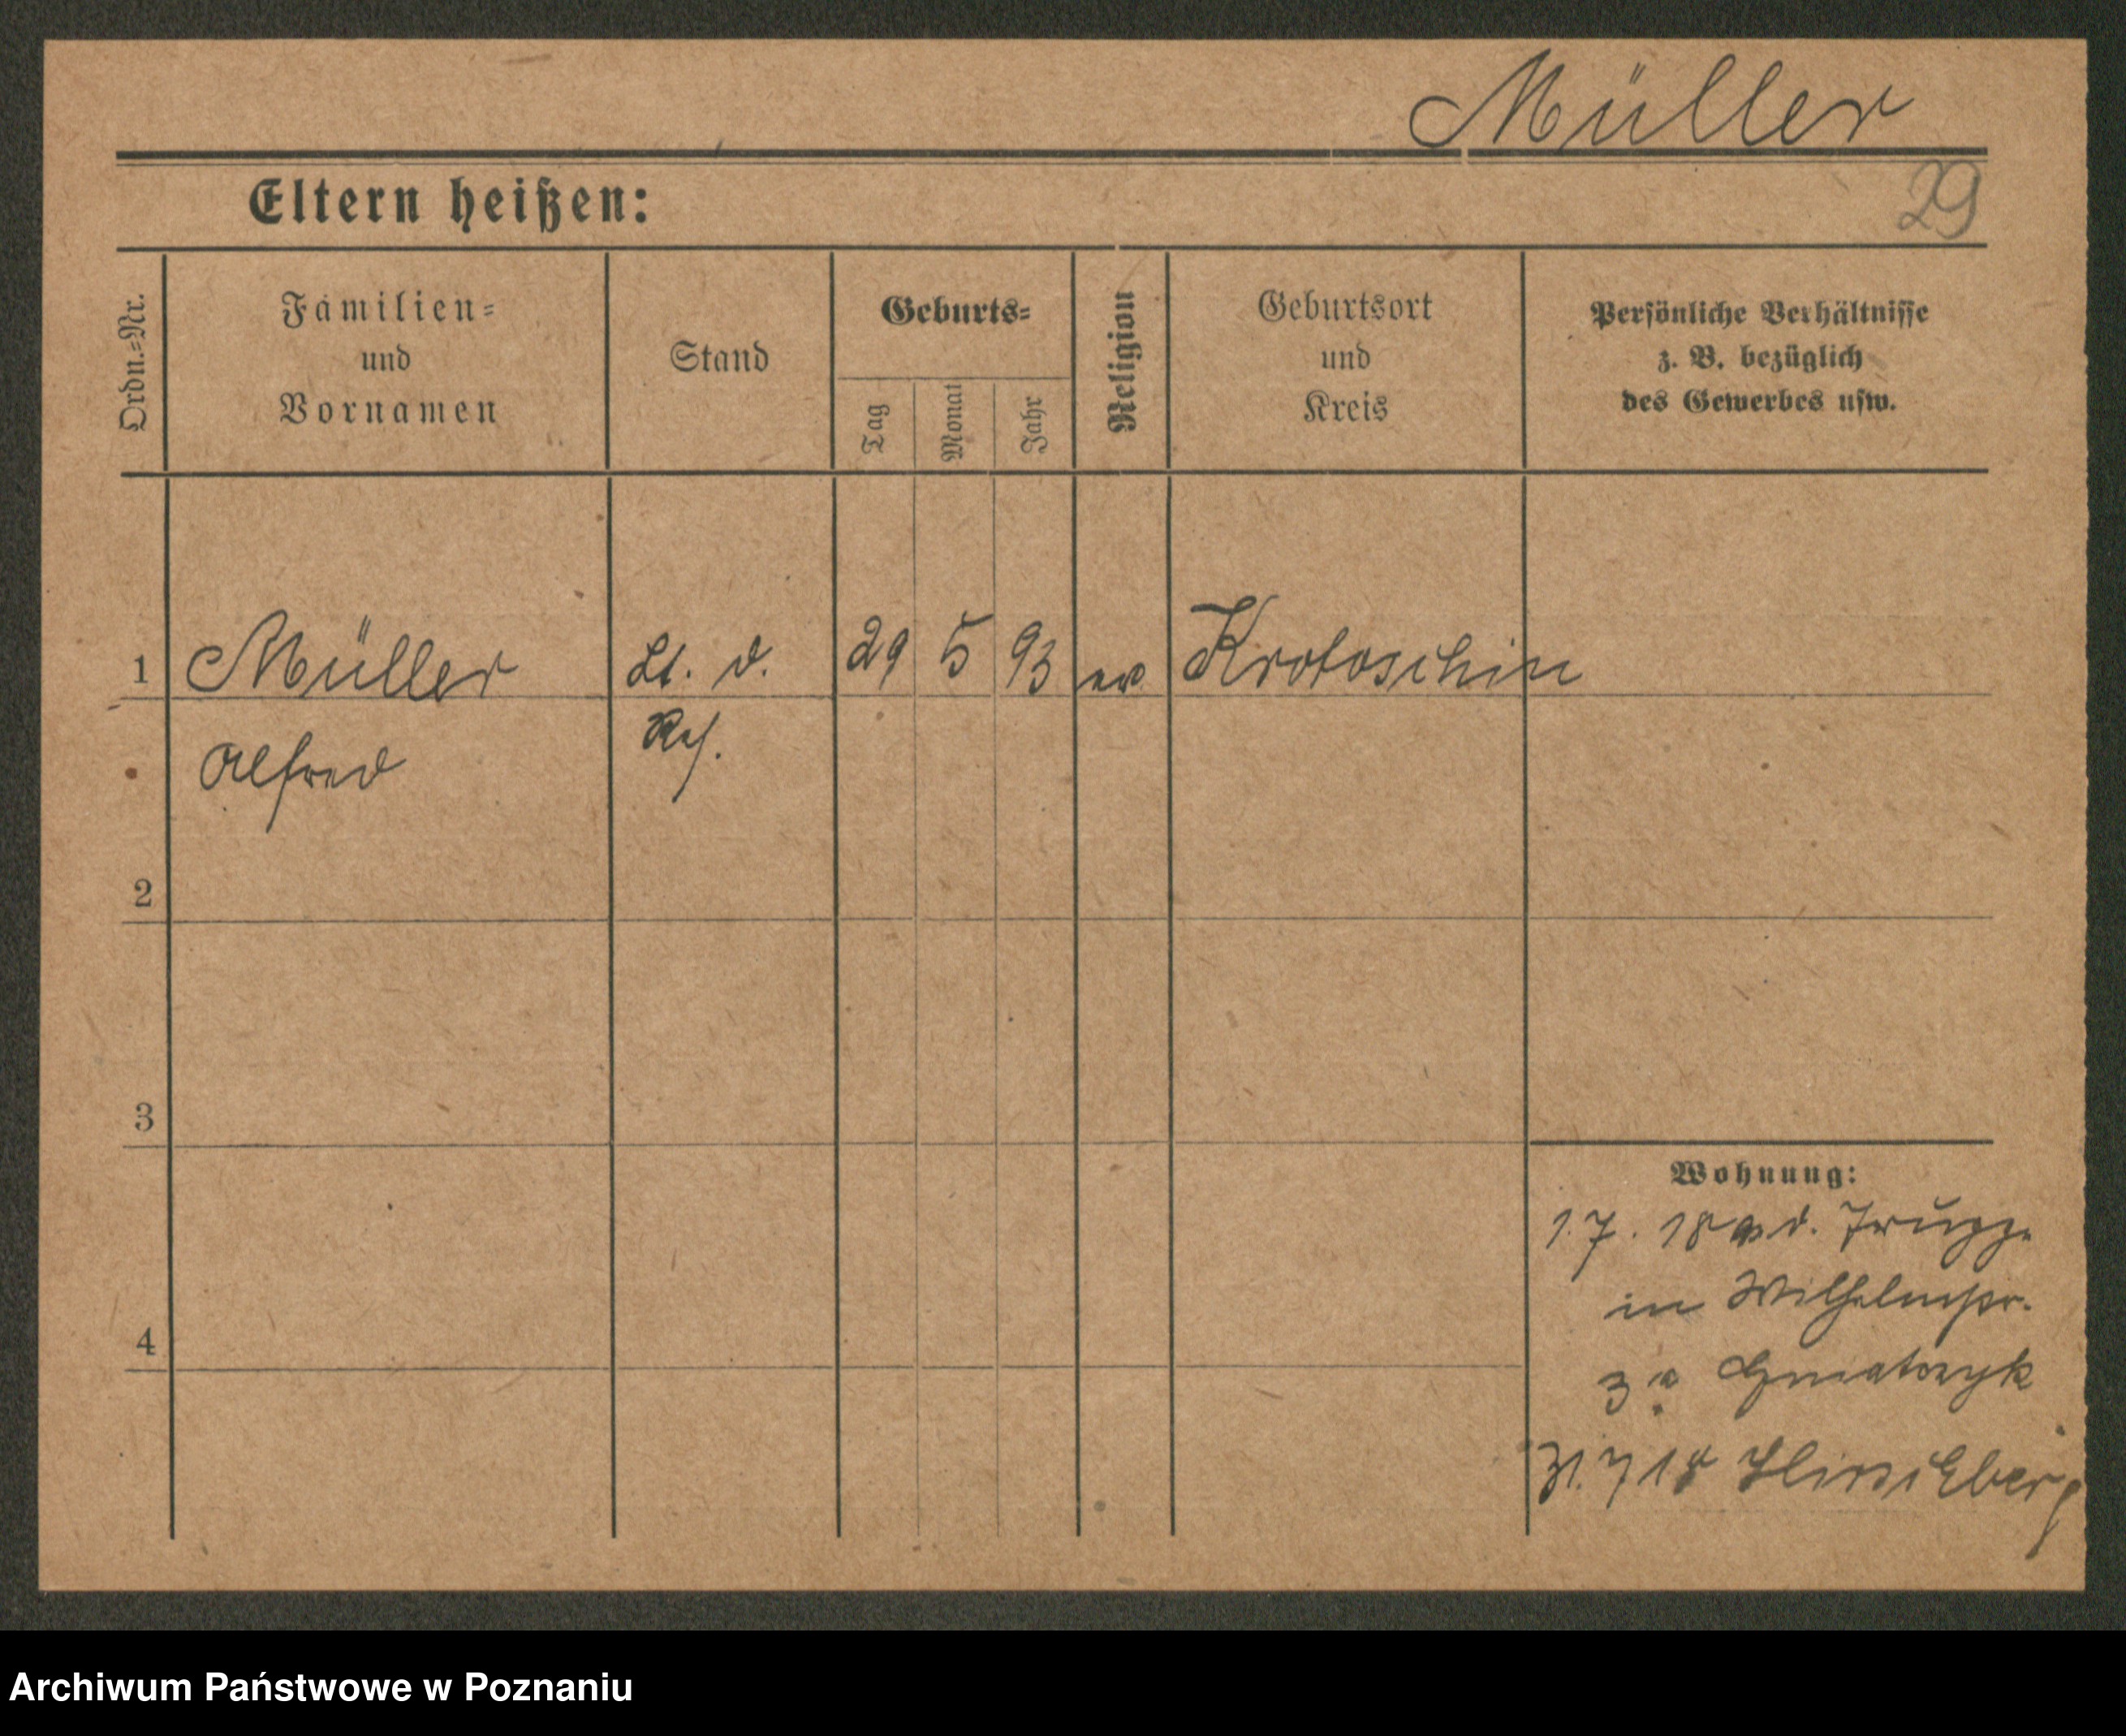 Müller
29
Eltern heißen:
Ordn.-Nr.
Familien-
und
Vornamen
Stand
Geburts-
Tag
Monat
Jahr
Religion
Geburtsort
und
Kreis
Persönliche Verhältnisse
z. B. bezüglich
des Gewerbes usw.
1 Müller Lt. d. 29 5 93 ev Krotoschin
Alfred Res.
2
3
4
Wohnung:
1.7.18 v. d. Truppe
in Wilhelmstr.
3a Gmatczyk
31.7 18 Hirschberg
Archiwum Państwowe w Poznaniu